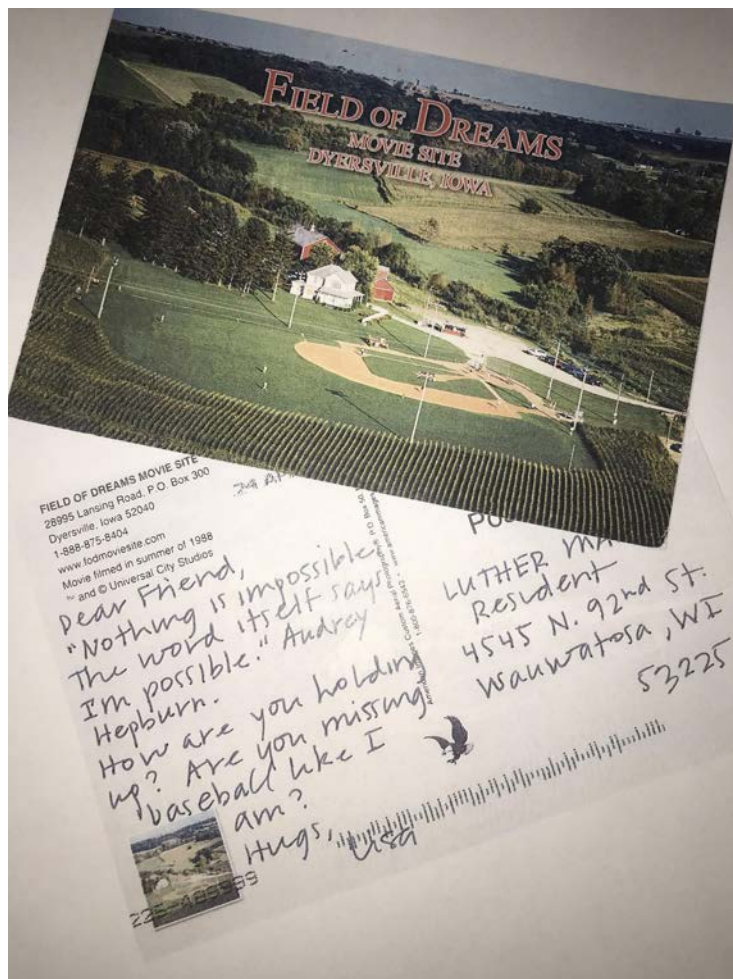 FIELD OF DREAMS
MOVIE SITE
DYERSVILLE, IOWA
FIELD OF DREAMS MOVIE SITE
28995 Lansing Road, P.O. Box 300
Dyersville, Iowa 52040
1-888-875-8404
www.fodmoviesite.com
Movie filmed in summer of 1988
and © Universal City Studios
Dear Friend,
"Nothing is impossible.
The word itself says
I'm possible." Audrey
Hepburn.
How are you holding
up? Are you missing
baseball like I
am?
Hugs,
Lisa
LUTHER MA
Resident
4545 N. 92nd St.
Wauwatosa, WI
53225